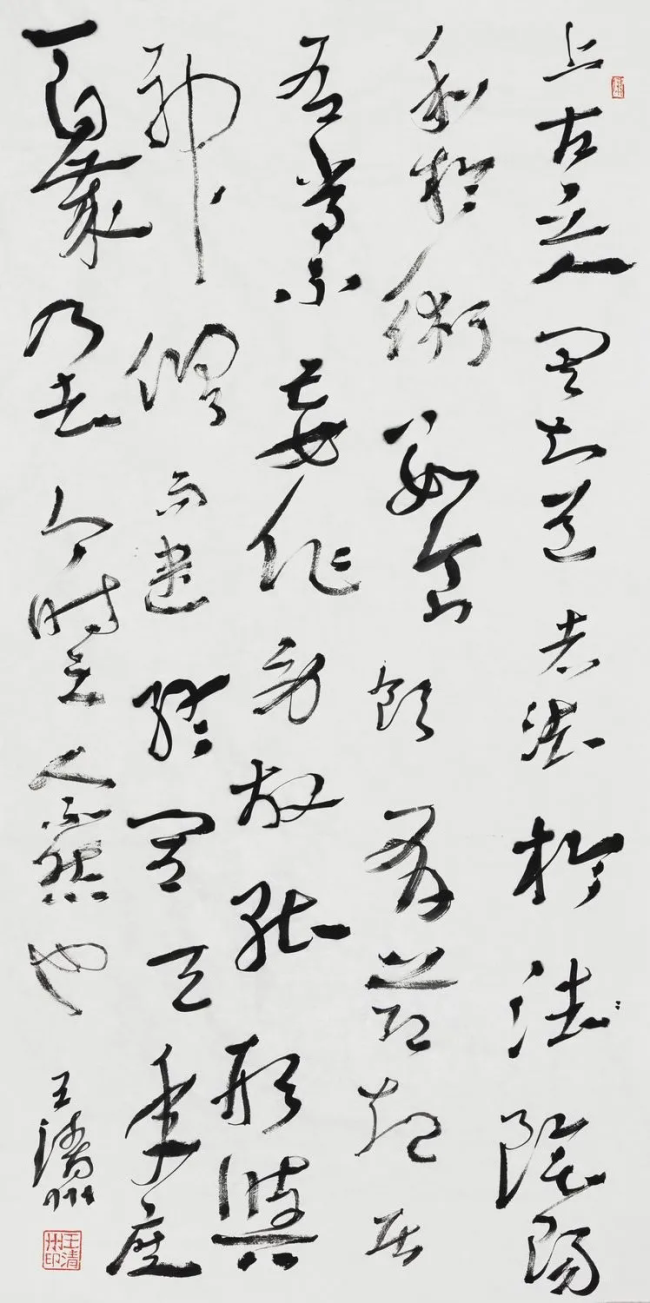 上古之人其知道者法於法陰陽
和於術數食飲有節起居
有常不妄作勞故能形與
神俱而盡終其天年度
百歲乃去今時之人不然也
王清州
王清州印